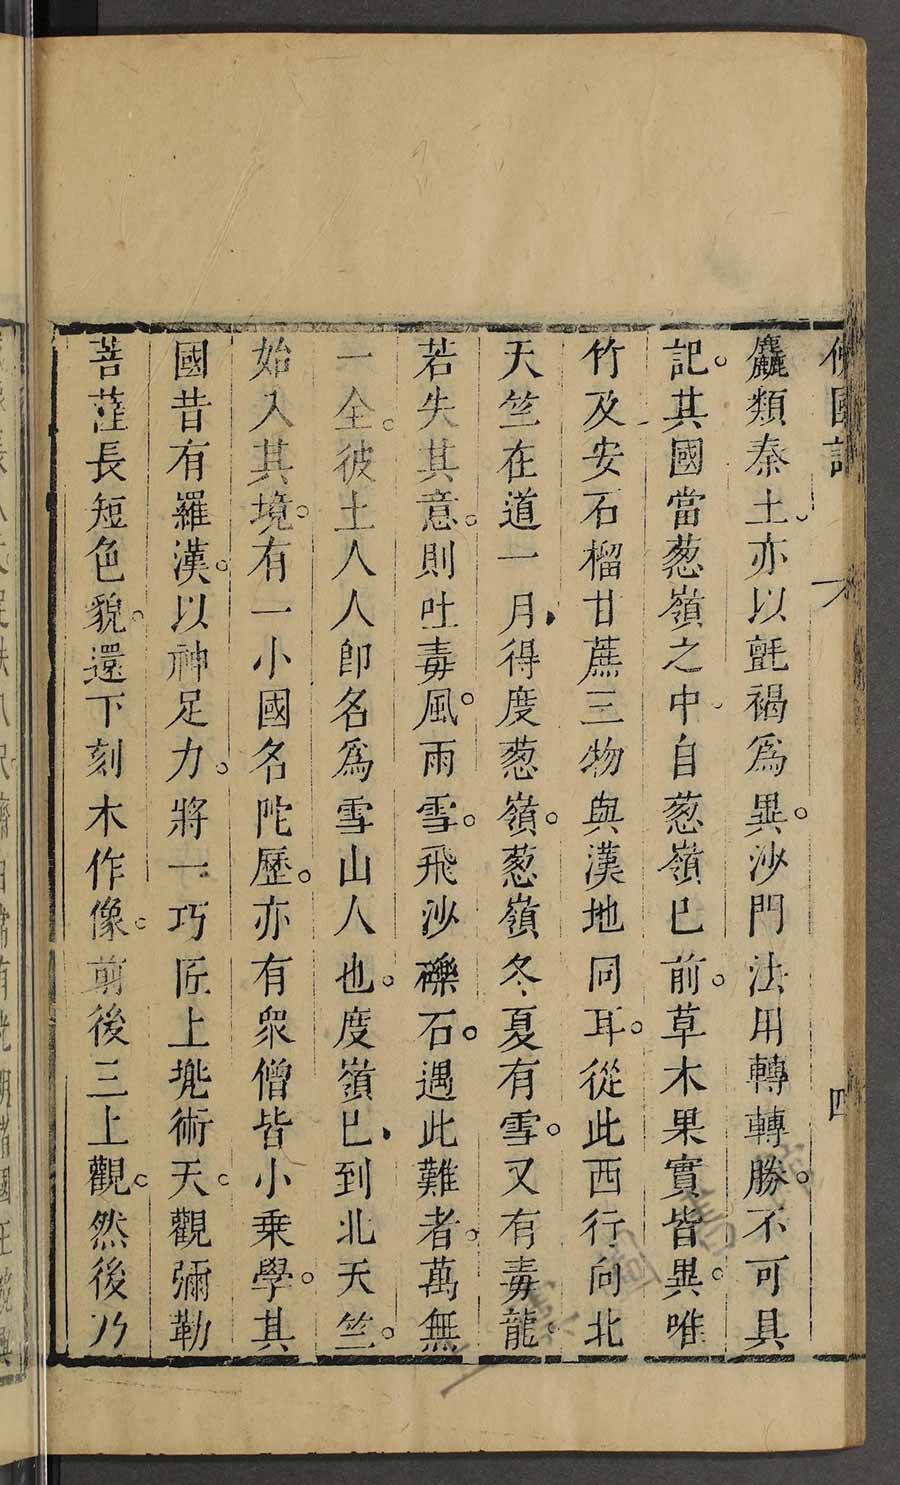 佛國記　四
麤類秦土亦以氈褐爲異。沙門法用轉轉勝。不可具
記。其國當葱嶺之中。自葱嶺已前。草木果實皆異。唯
竹及安石榴甘蔗三物與漢地同耳。從此西行向北
天竺在道一月得度葱嶺。葱嶺冬夏有雪。又有毒龍。
若失其意。則吐毒風。雨雪。飛沙礫石。遇此難者。萬無
一全。彼土人人卽名爲雪山人也。度嶺已到北天竺。
始入其境。有一小國名陀歷。亦有眾僧皆小乗學。其
國昔有羅漢。以神足力。將一巧匠上兠術天。觀彌勒
菩薩長短色貌。還下刻木作像。剪後三上觀。然後乃